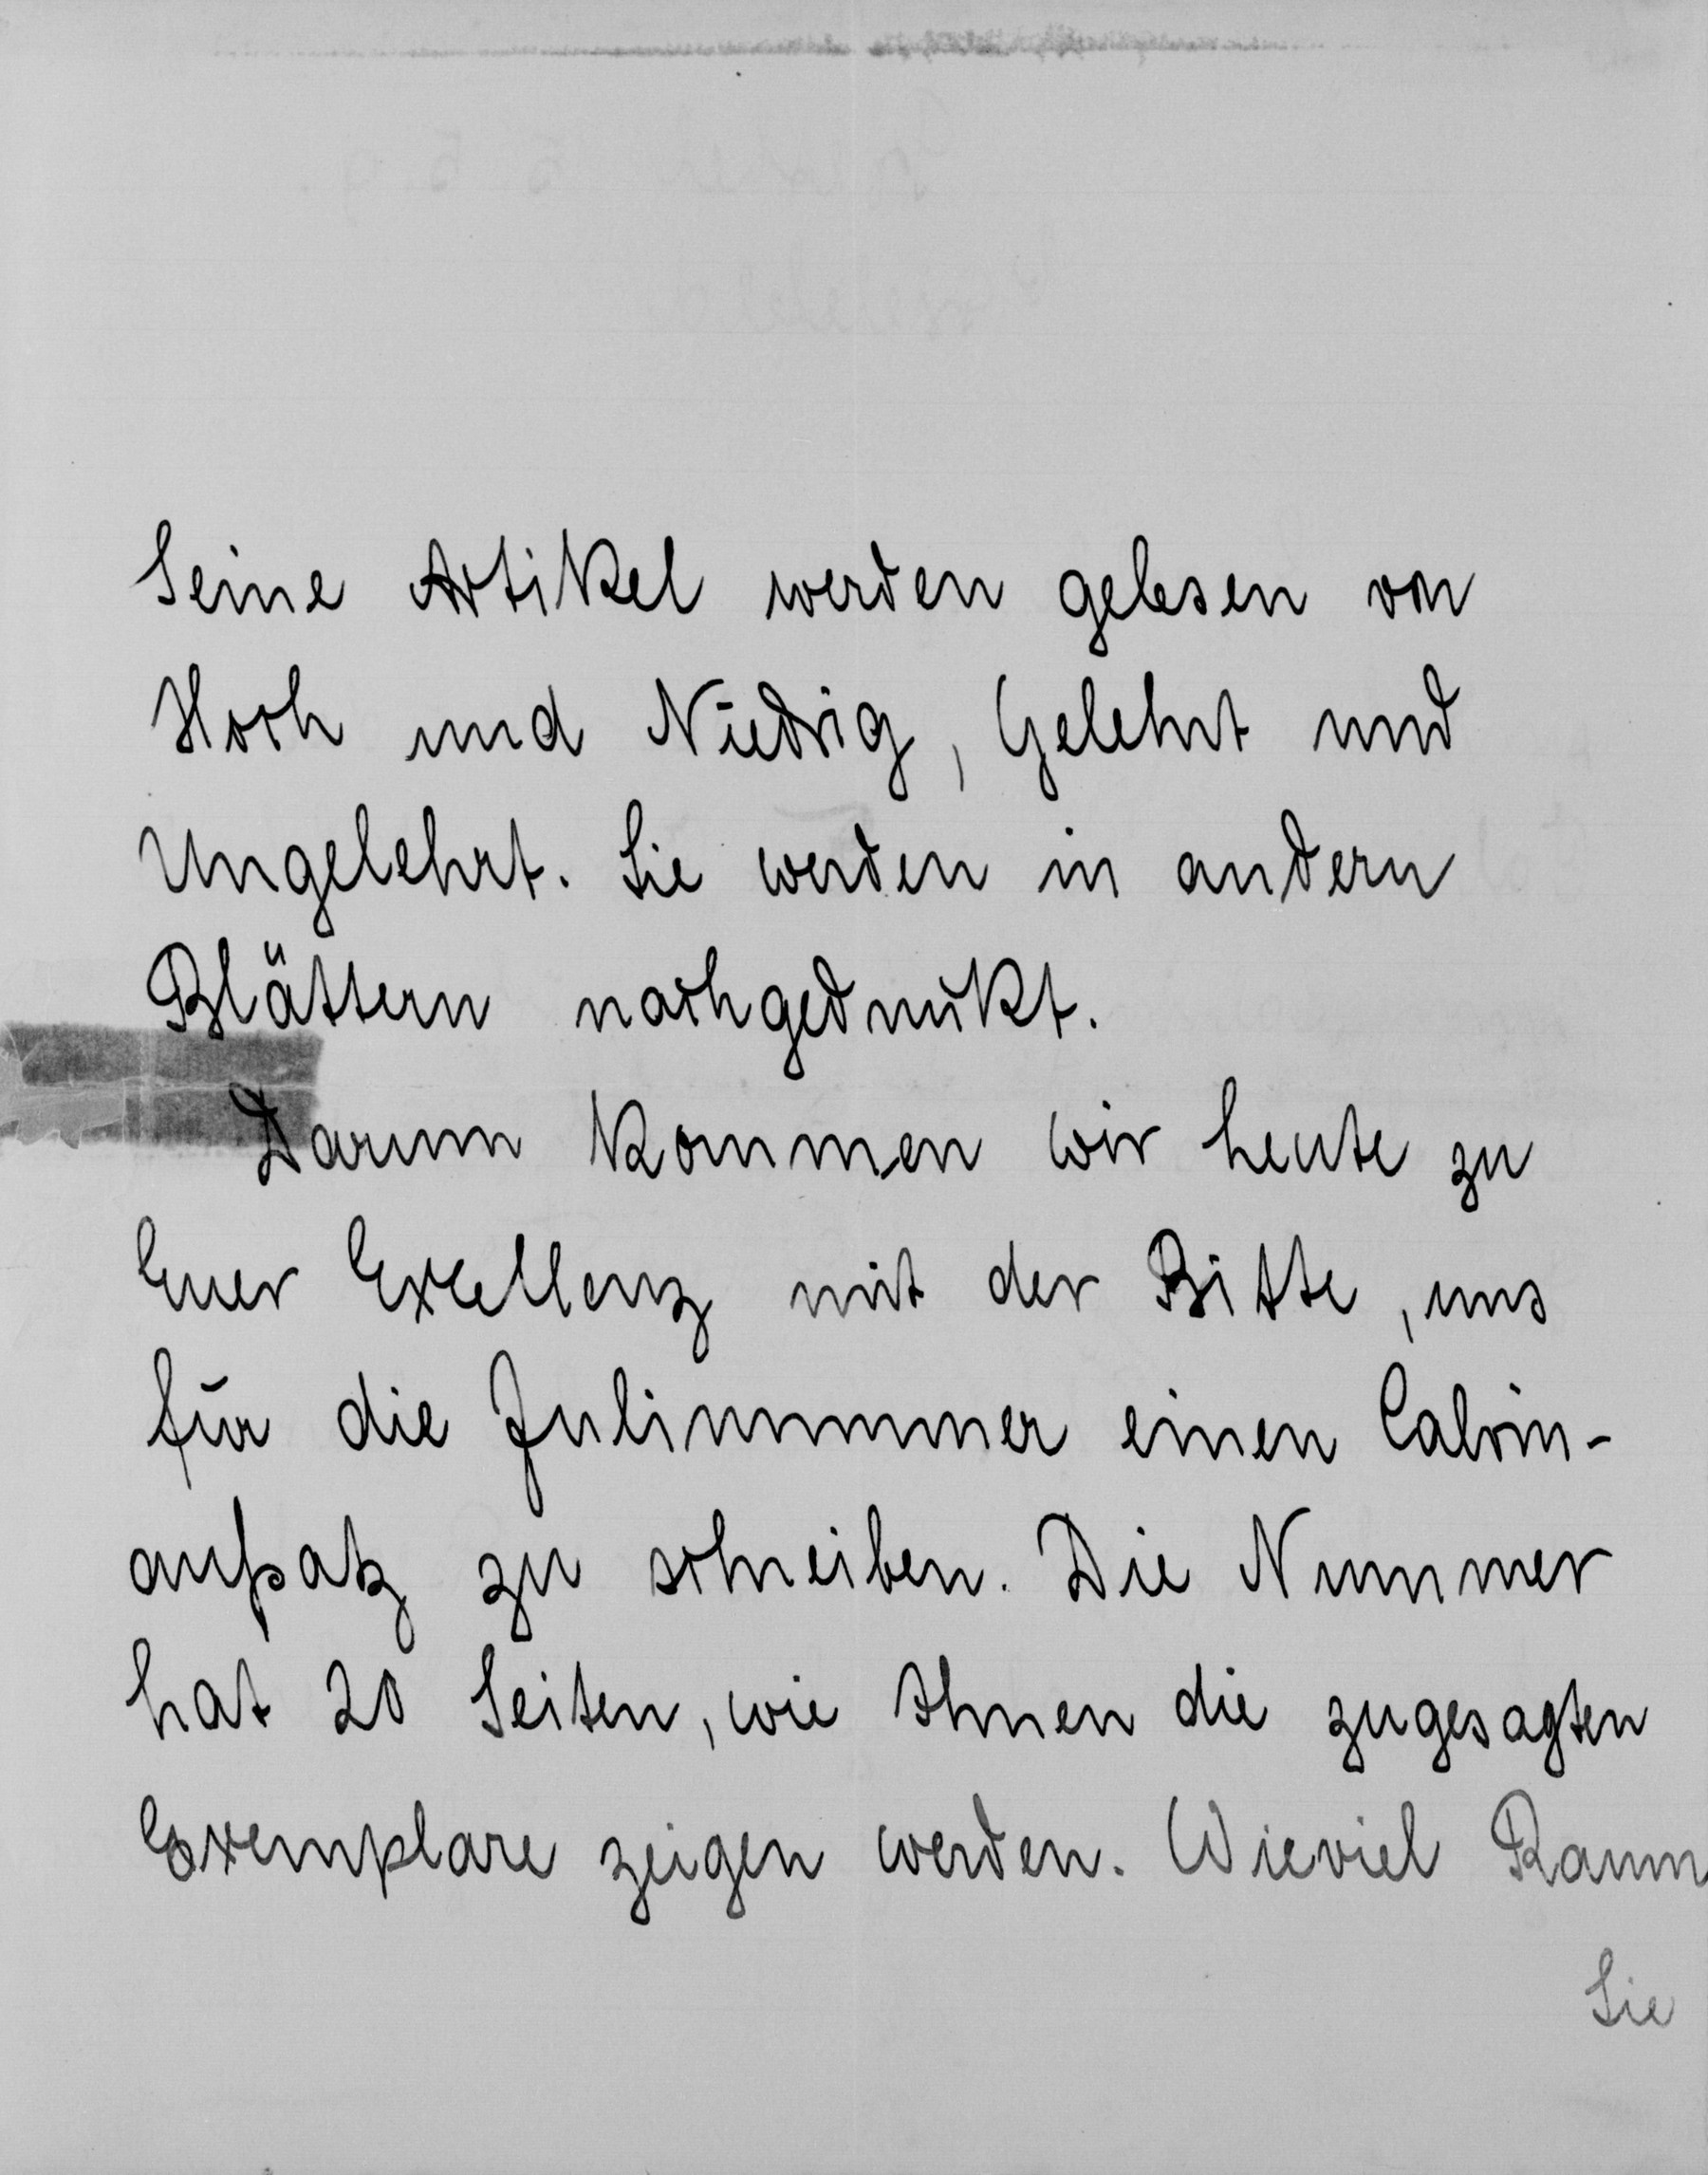 Seine Artikel werden gelesen von
Hoch und Niedrig, Gelehrt und
Ungelehrt. Sie werden in andern
Blättern nachgedruckt.
Darum kommen wir heute zu
Euer Excellenz mit der Bitte, uns
für die Julinummer einen Calvin-
aufsatz zu schreiben. Die Nummer
hat 20 Seiten, wie Ihnen die zugesagten
Exemplare zeigen werden. Wieviel Raum
Sie